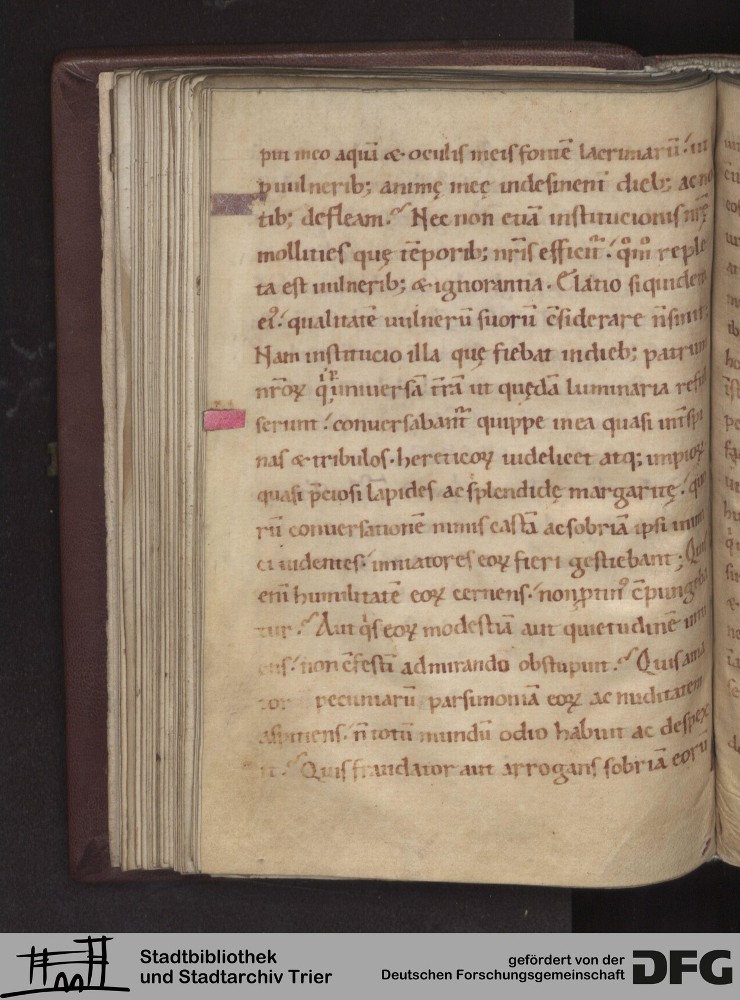 piti meo aquā & oculis meis fontē lacrimarū: ut
p uulnerib; animę meę indesinent dieb; ac no
tib; defleam. Nec non etiā institucionis nr̄ę
mollities quę tēporib; nr̄is efficit̄: qm̄ reple
ta est uulnerib; & ignorantia. Elatio siquidem
ei: qualitatē uulnerū suorū c̄siderare n̄ sinit.
Nam institucio illa quę fiebat in dieb; patrum
nr̄oꝝ uniuersā tr̄ā ut quędā luminaria reful
serunt: conuersabant̄ quippe in ea quasi int̄ spi
nas & tribulos. hereticoꝝ uidelicet atq; impioꝝ
quasi p̄ciosi lapides ac splendidę margaritę: quo
rū conuersationē nimis castā ac sobriā ipsi inimi
ci uidentes: imitatores eoꝝ fieri gestiebant; Quis
enī humilitatē eoꝝ cernens: non ꝓtin' c̄pungeba
tur. Aut q̄s eoꝝ modestiā aut quietudinē intu
ens: non c̄festī admirando obstupuit. Quis ama
tor pecuniarū parsimoniā eoꝝ ac nuditatem
aspiciens: n̄ totū mundū odio habuit ac despex
it. Quis fraudator aut arrogans sobriā eorū
Stadtbibliothek
und Stadtarchiv Trier
gefördert von der
Deutschen Forschungsgemeinschaft
DFG